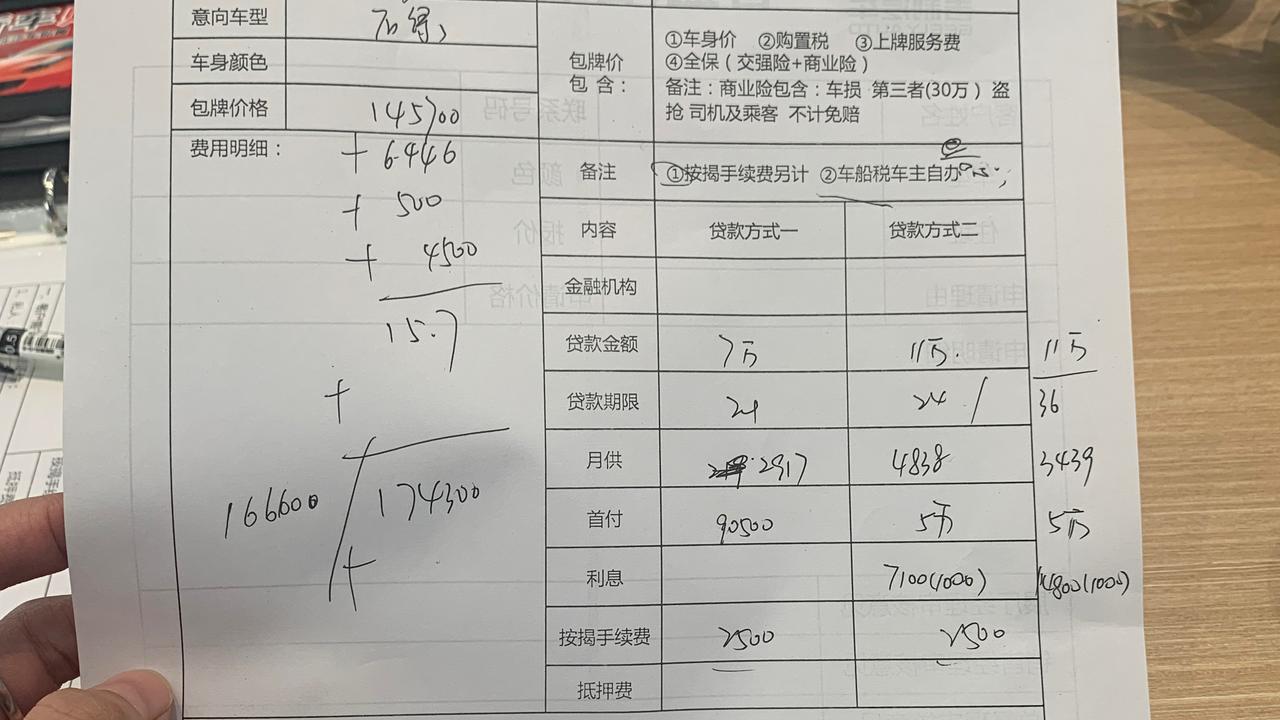 意向车型
车身颜色
包牌价格 145700
包牌价
包 含：
①车身价 ②购置税 ③上牌服务费
④全保（交强险+商业险）
备注：商业险包含：车损 第三者(30万） 盗
抢 司机及乘客 不计免赔
费用明细：
+ 6446
+ 500
+ 4500
15.7
+
166600 / 174300
+
备注 ①按揭手续费另计 ②车船税车主自办
内容 贷款方式一 贷款方式二
金融机构
贷款金额 7万 11万. 11万
贷款期限 24 24 / 36
月供 2917 4838 3439
首付 90500 5万 5万
利息 7100(1000) 14800(1000)
按揭手续费 2500 2500
抵押费